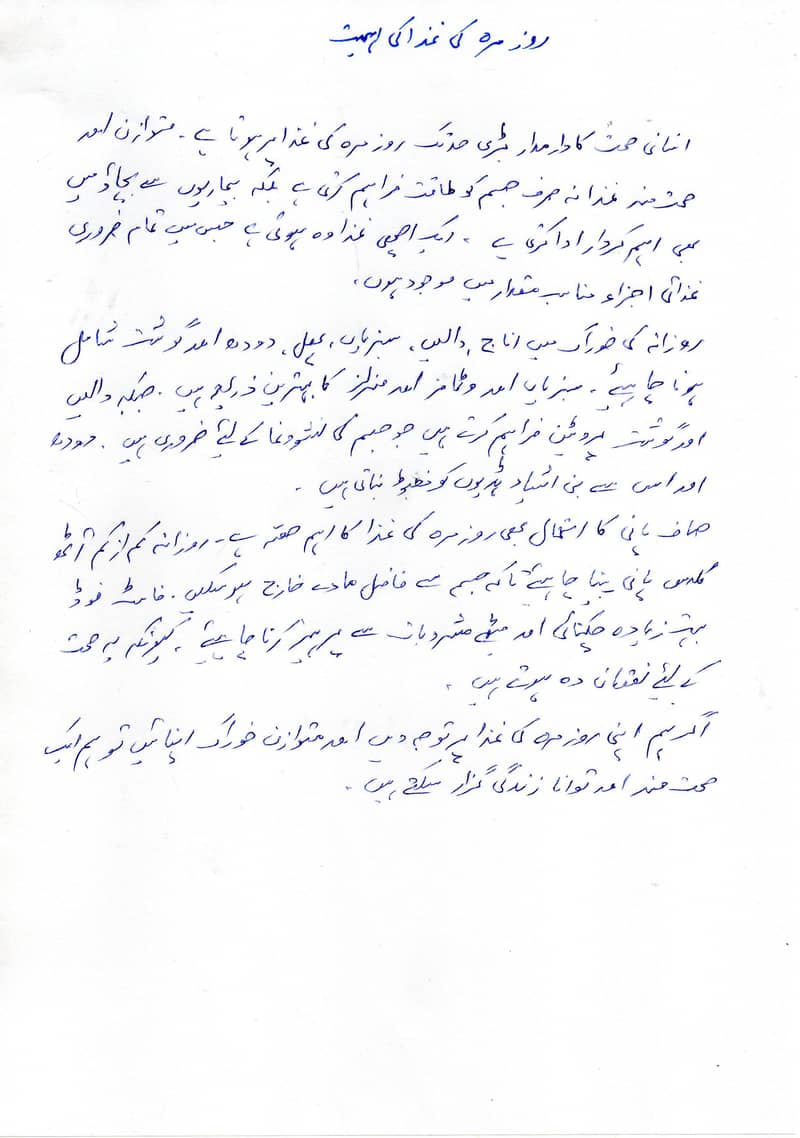 روز مرہ کی غذا کی اہمیت
انسانی صحت کا دارومدار بڑی حد تک روز مرہ کی غذا پر ہوتا ہے۔ متوازن اور
صحت مند غذا نہ صرف جسم کو طاقت فراہم کرتی ہے بلکہ بیماریوں سے بچاؤ میں
بھی اہم کردار ادا کرتی ہے۔ ایک اچھی غذا وہ ہوتی ہے جس میں تمام ضروری
غذائی اجزاء مناسب مقدار میں موجود ہوں۔
روزانہ کی خوراک میں اناج، دالیں، سبزیاں، پھل، دودھ اور گوشت شامل
ہونا چاہیئے۔ سبزیاں اور وٹامنز اور منرلز کا بہترین ذریعہ ہیں۔ جبکہ دالیں
اور گوشت پروٹین فراہم کرتے ہیں جو جسم کی نشوونما کے لیئے ضروری ہیں۔ دودھ
اور اس سے بنی اشیاء ہڈیوں کو مضبوط بناتی ہیں۔
صاف پانی کا استعمال بھی روز مرہ کی غذا کا اہم حصہ ہے۔ روزانہ کم از کم آٹھ
گلاس پانی پینا چاہیئے تاکہ جسم سے فاضل مادے خارج ہو سکیں۔ فاسٹ فوڈ
بہت زیادہ چکنائی اور میٹھے مشروبات سے پرہیز کرنا چاہیئے۔ کیونکہ یہ صحت
کے لیئے نقصان دہ ہوتے ہیں۔
اگر ہم اپنی روز مرہ کی غذا پر توجہ دیں اور متوازن خوراک اپنائیں تو ہم ایک
صحت مند اور توانا زندگی گزار سکتے ہیں۔